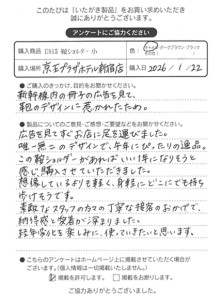 このたびは『いたがき製品』をお買い求めいただき
誠にありがとうございます。
アンケートにご協力ください
購入商品 E915 鞍ショルダー・小
色: ダークブラウン ブラック
購入場所 京王プラザホテル新宿店
購入日 2026/1/22
●ご購入のきっかけ、目的をお聞かせください。
新幹線内の冊子の広告を見て、
鞍のデザインに惹かれたため。
●製品についてのご意見・ご感想・ご要望などをお聞かせください。
広告を見てすぐお店に足を運びました。
唯一無二のデザインで、午年にぴったりの逸品。
この鞍ショルダーがあればいい1年になりそうと
感じ購入させていただきました。
想像しているよりも軽く、身軽にどこにでも持ち
歩けそうです。
素敵なスタッフの方の丁寧な接客のおかげで、
納得感と愛着が深まりました。
経年変化を楽しみに、使っていきたいと思います。
●こちらのアンケートはホームページ上に掲載させていただく場合が
ございます。(個人情報は一切掲載いたしません。)
掲載を許可します ・ 掲載をお断りします
ご協力ありがとうございました。